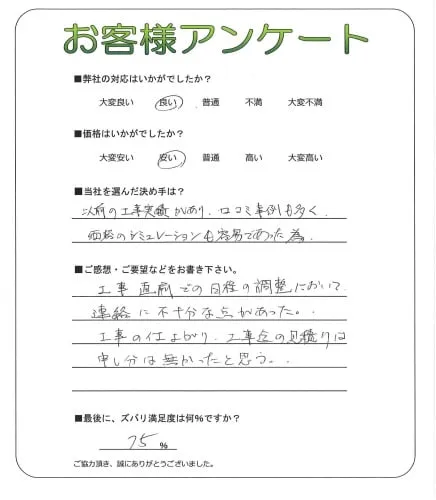 お客様アンケート
■弊社の対応はいかがでしたか？
大変良い 良い 普通 不満 大変不満
■価格はいかがでしたか？
大変安い 安い 普通 高い 大変高い
■当社を選んだ決め手は？
以前の工事実績があり、口コミ事例も多く、
価格のシミュレーションも容易であった為。
■ご感想・ご要望などをお書き下さい。
工事直前での日程の調整において
連絡に不十分な点があった。
工事の仕上がり、工事金の見積りは
申し分は無かったと思う。
■最後に、ズバリ満足度は何%ですか？
75 %
ご協力頂き、誠にありがとうございました。